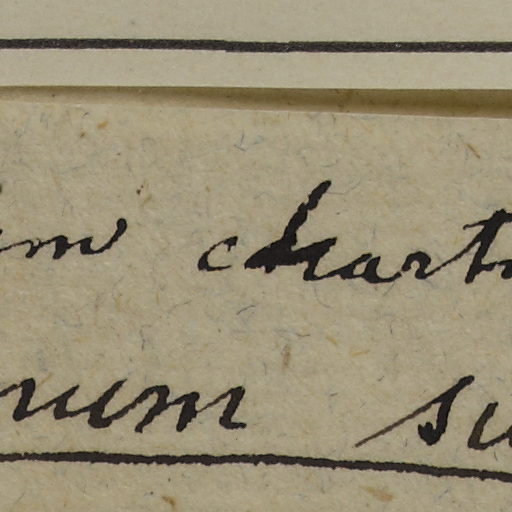 um chart
num su